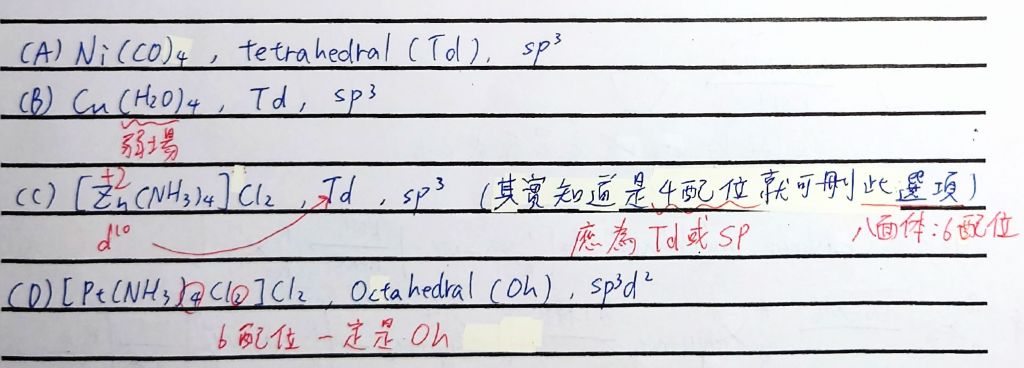 (A) Ni(CO)4 , tetrahedral (Td), sp³
(B) Cu(H2O)4 , Td, sp³
弱場
+2
(C) [Zn(NH3)4]Cl2 , Td , sp³ (其實知道是4配位就可刪此選項)
d¹⁰ 應為Td或SP 八面体:6配位
(D) [Pt(NH3)4Cl2]Cl2 , Octahedral (Oh) , sp³d²
6配位一定是Oh